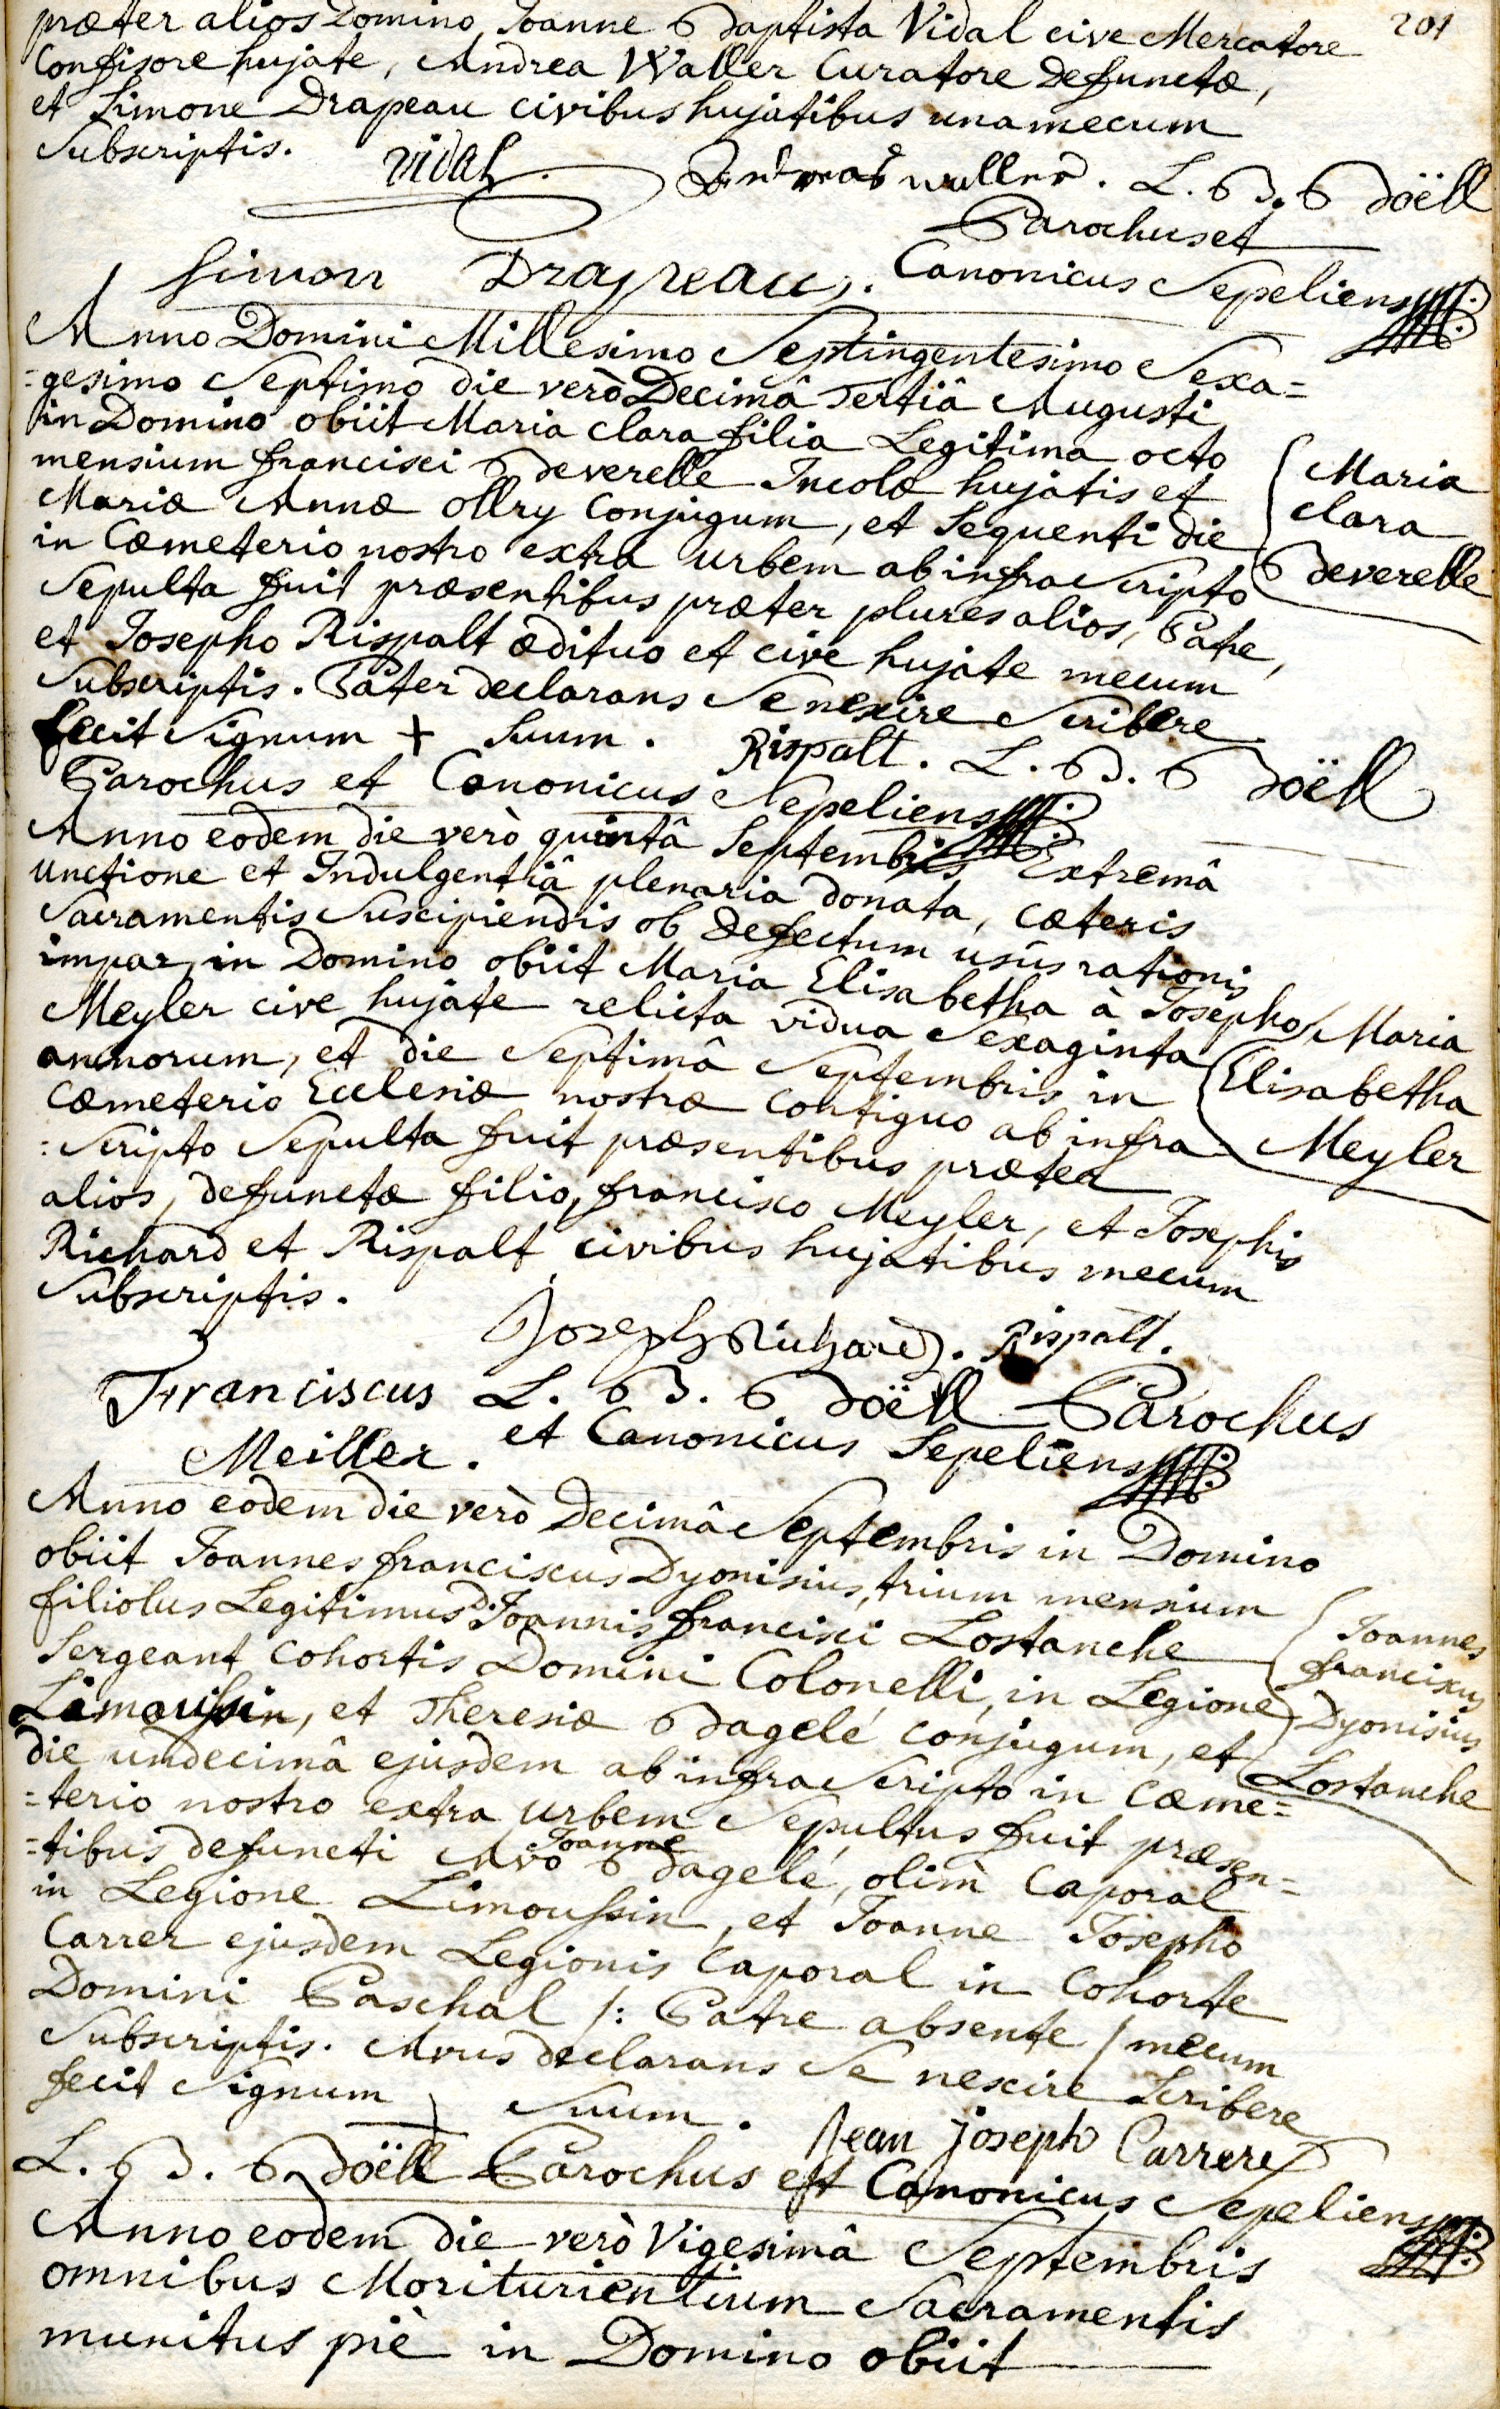 201
præter alios Domino Joanne Baptista Vidal cive Mercatore
Confisore hujate, Andrea Waller Curatore defunctæ,
et Simone Drapeau civibus hujatibus una mecum
Subscriptis.
Vidal
Andreas waller. L. B. Boëll
Parochus et
Simon Drapeau. Canonicus Sepeliens
Anno Domini Millesimo Septingentesimo Sexa=
=gesimo Septimo die verò Decimâ Tertiâ Augusti
in Domino obiit Maria Clara filia Legitima octo
mensium francisci Beverelle Incolæ hujatis et
Mariæ Annæ ollry Conjugum, et Sequenti die
in Cœmeterio nostro extra urbem ab infra Scripto
Sepulta fuit præsentibus præter plures alios, Patre,
et Josepho Rispalt ædituo et cive hujate mecum
Subscriptis. Pater declarans Se nescire Scribere
fecit Signum + Suum. Rispalt. L. B. Boëll
Parochus et Canonicus Sepeliens
Maria
Clara
Beverelle
Anno eodem die verò quintâ Septembris Extremâ
unctione et Indulgentiâ plenaria donata, cæteris
Sacramentis Suscipiendis ob defectum usûs rationis
impar, in Domino obiit Maria Elisabetha à Josepho
Meyler cive hujate relicta vidua Sexaginta
annorum, et die Septimâ Septembris in
Cœmeterio Ecclesiæ nostræ Contiguo ab infra
=Scripto Sepulta fuit præsentibus præter
alios, defunctæ filio, francisco Meyler, et Josephis
Richard et Rispalt civibus hujatibus mecum
Subscriptis.
Maria
Elisabetha
Meyler
Joseph Richard. Rispalt.
Franciscus L. B. Boëll Parochus
Meiller. et Canonicus Sepeliens
Anno eodem die verò Decimâ Septembris in Domino
obiit Joannes franciscus Dyonisius, trium mensium
filiolus Legitimus D. Joannis francisci Lostanche
Sergeant Cohortis Domini Colonelli, in Legione
Limoussin, et Theresiæ Bagelé conjugum, et
die undecimâ ejusdem ab infra Scripto in Cœme=
=terio nostro extra urbem Sepultus fuit præsen=
=tibus defuncti Avo Joanne Bagelé, olim Caporal
in Legione Limoussin, et Joanne Josepho
Carrer ejusdem Legionis Caporal in Cohorte
Domini Paschal /: Patre absente / mecum
Subscriptis. Avus declarans Se nescire Scribere
fecit Signum + Suum. Jean joseph Carrere
L. B. Boëll Parochus et Canonicus Sepeliens
Joannes
franciscus
Dyonisius
Lostanche
Anno eodem die verò Vigesimâ Septembris
omnibus Moriturientium Sacramentis
munitus piè in Domino obiit